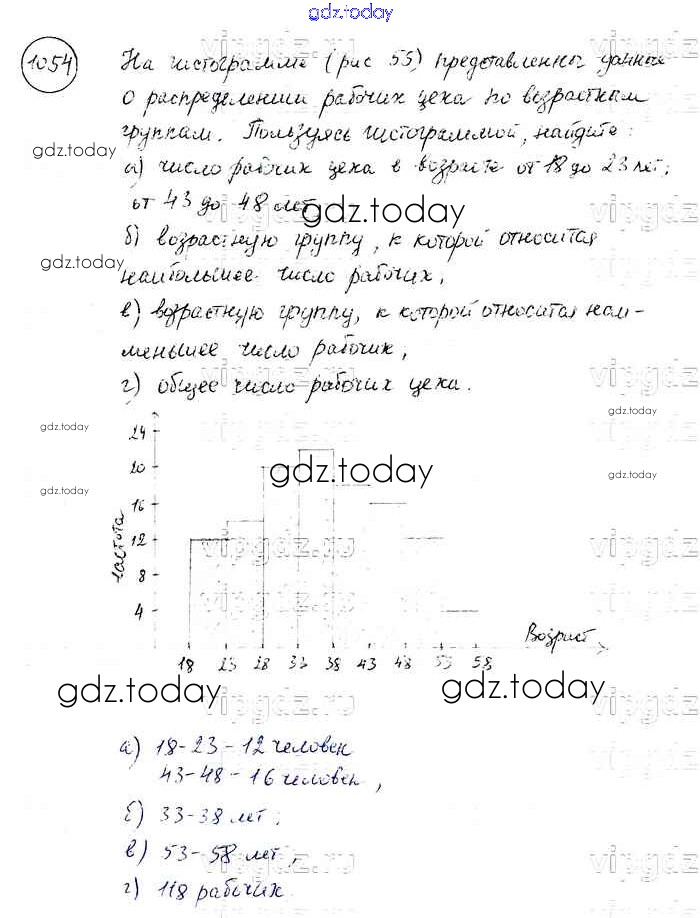 gdz.today
1054 На гистограмме (рис 55) представлены данные
о распределении рабочих цеха по возрастным
группам. Пользуясь гистограммой, найдите:
gdz.today
а) число рабочих цеха в возрасте от 18 до 23 лет;
от 43 до 48 лет
gdz.today
б) возрастную группу, к которой относится
gdz.today
наибольшее число рабочих,
в) возрастную группу, к которой относится наи-
меньшее число рабочих,
г) общее число рабочих цеха.
vipgdz
gdz.today
gdz.today
24
20
gdz.today
gdz.today
gdz.today
16
частота
12
vipgdz.ru
vipgdz
8
4
Возраст
18 23 28 33 38 43 48 53 58
gdz.today
gdz.today
а) 18-23-12 человек
43-48-16 человек,
б) 33-38 лет;
в) 53-58 лет,
vipgdz.ru
vipgdz
г) 118 рабочих.